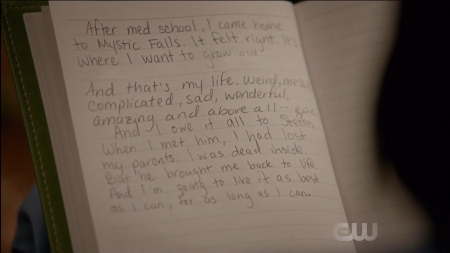 After med school, I came home
to Mystic Falls. It felt right. It's
where I want to grow old.
And that's my life. Weird, messy,
complicated, sad, wonderful,
amazing and above all... epic
And I owe it all to Stefan.
When I met him, I had lost
my parents. I was dead inside.
But he brought me back to life.
And I'm going to live it as best
as I can, for as long as I can.
CW